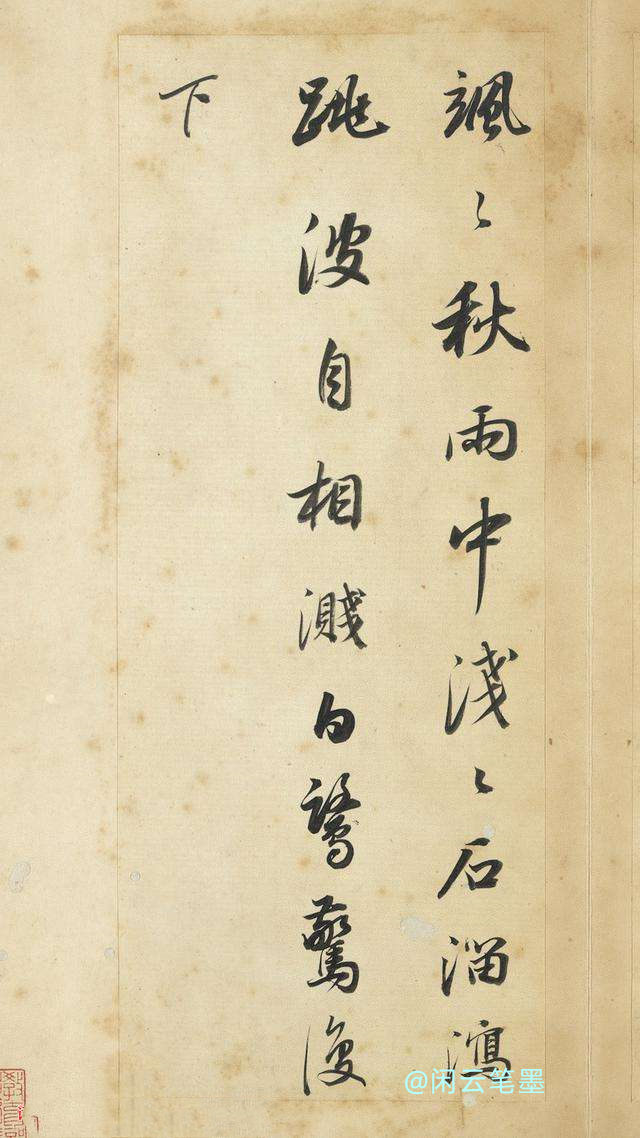 颯〻秋雨中淺〻石溜瀉
跳波自相濺白鷺驚復
下
@闲云笔墨